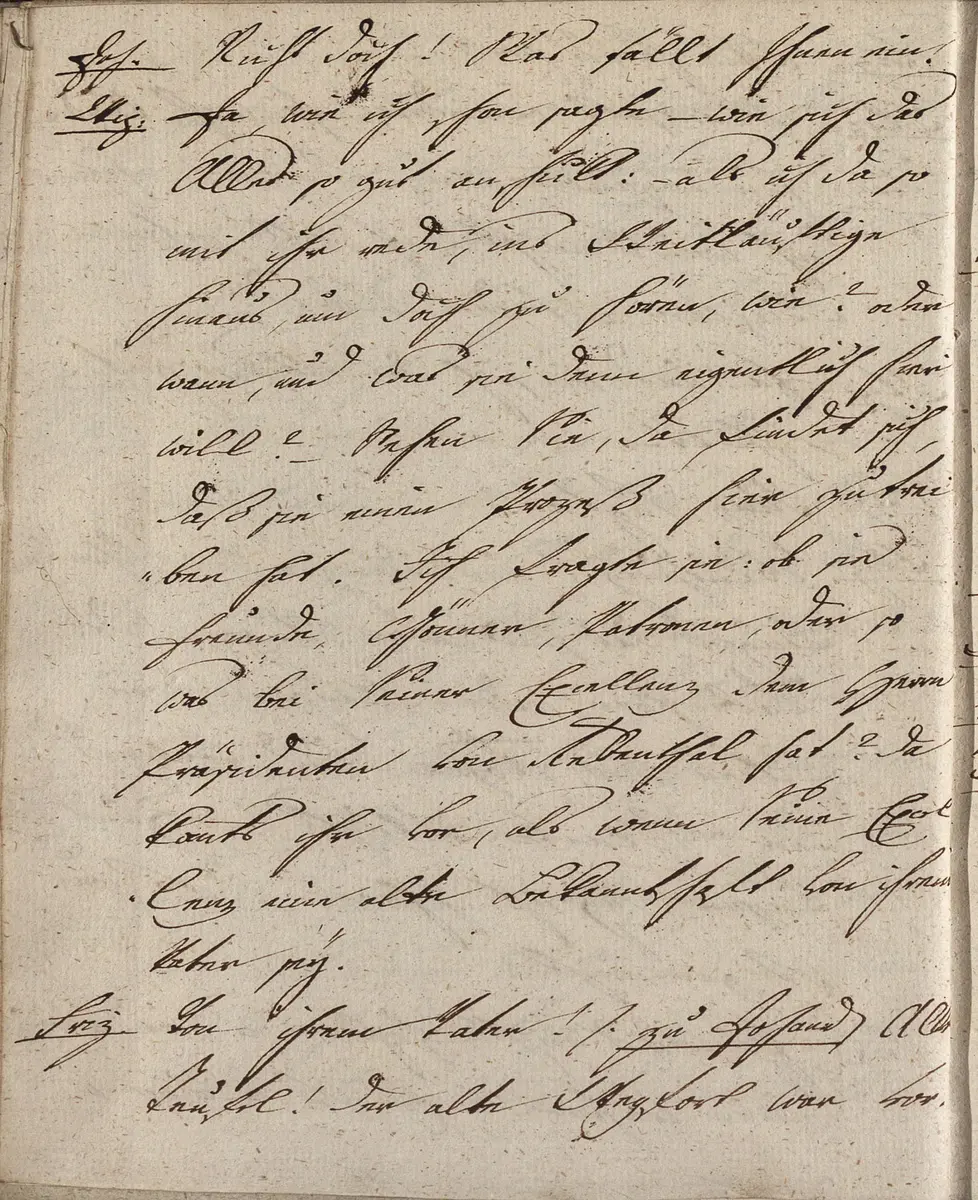 Joh. Nicht doch! Was fällt Ihnen ein!
Wiz. Ja, wie ich schon sagte – wie sich das
Alles so gut anhült: – als ich da so
mit ihr rede, ins Weitläuftige
hinaus, um doch zu hören, wie? oder
wann, und was sie denn eigentlich hier
will? – Sehen Sie, da findet sich,
daß sie einen Prozeß hier zu trei
ben hat. Ich fragte sie: ob sie
Freunde, Gönner, Patronen, oder so
was bei Seiner Excellenz dem Herrn
Präsidenten von Rebenthal hat? da
kam's ihr vor, als wenn Seine Excel
lenz eine alte Bekanntschaft von ihrem
Vater sey.
Friz. Von ihrem Vater! /: zu Johann) Alle
Teufel! Der alte war vor.